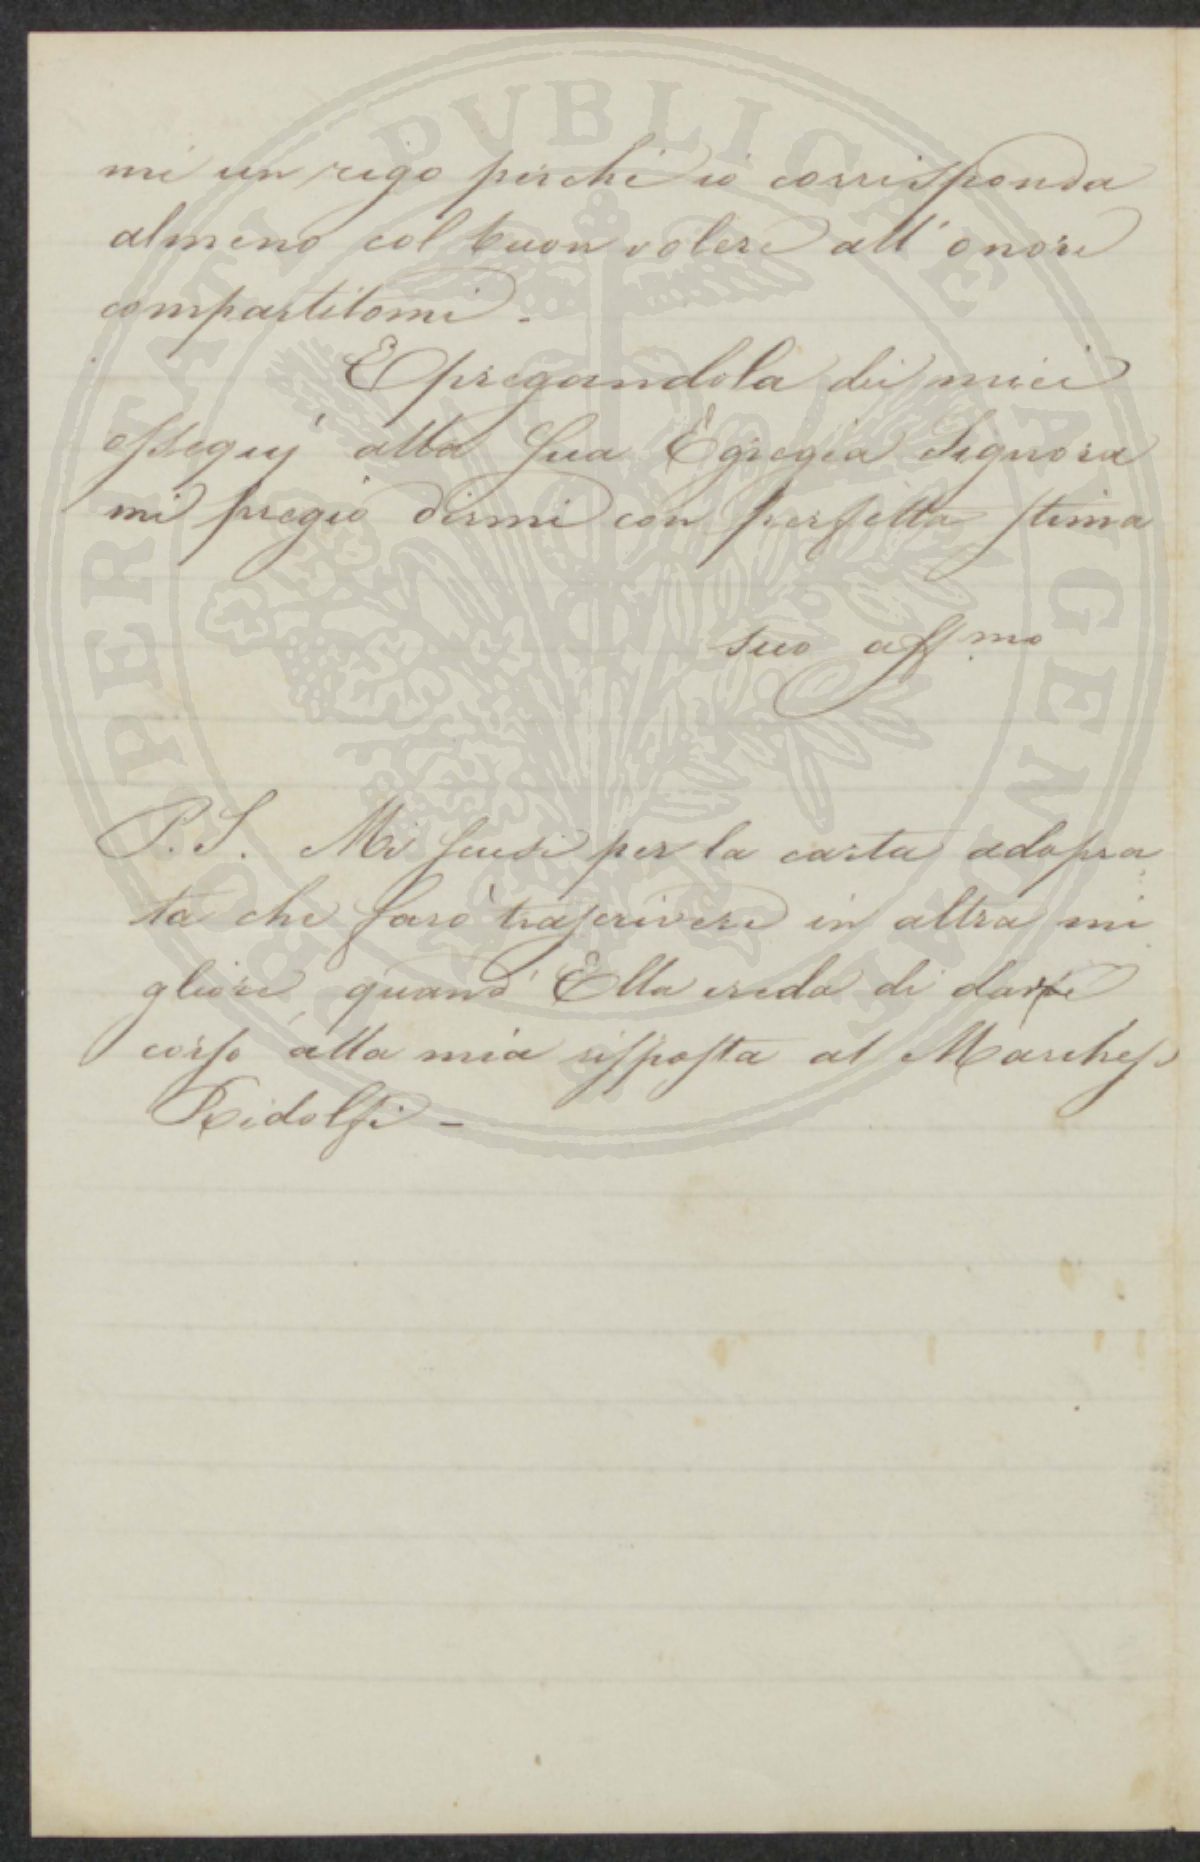 mi un rigo perchè io corrisponda
almeno col buon volere all'onore
compartitomi.
E pregandola dei miei
ossequj alla Sua Egregia Signora
mi pregio dirmi con perfetta stima
suo affmo
P.S. Mi scusi per la carta adopra
ta che farò trascrivere in altra mi
gliore, quand'Ella creda di dare
corso alla mia risposta al Marchese
Ridolfi -
PROSPERITATI PVBLICAE AVGENDAE